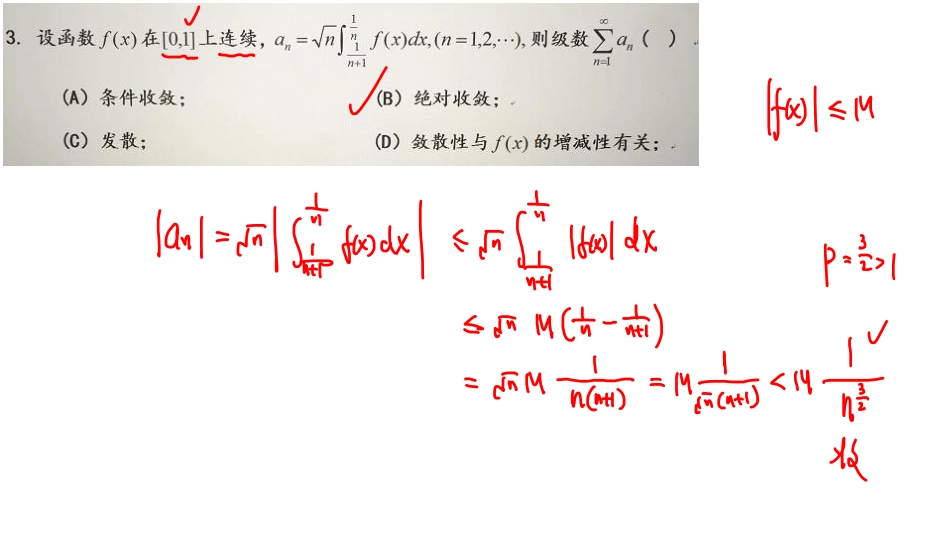 3. 设函数 f(x) 在 [0,1] 上连续, a_n = √n ∫_{1/(n+1)}^{1/n} f(x)dx, (n = 1,2,⋯), 则级数 ∑_{n=1}^{∞} a_n ( )
(A) 条件收敛; (B) 绝对收敛;
(C) 发散; (D) 敛散性与 f(x) 的增减性有关;
|f(x)| ≤ M
|a_n| = √n |∫_{1/(n+1)}^{1/n} f(x)dx| ≤ √n ∫_{1/(n+1)}^{1/n} |f(x)| dx
P = 3/2 > 1
≤ √n M (1/n − 1/(n+1))
= √n M 1/(n(n+1)) = M 1/(√n(n+1)) < M 1/n^{3/2}
收敛